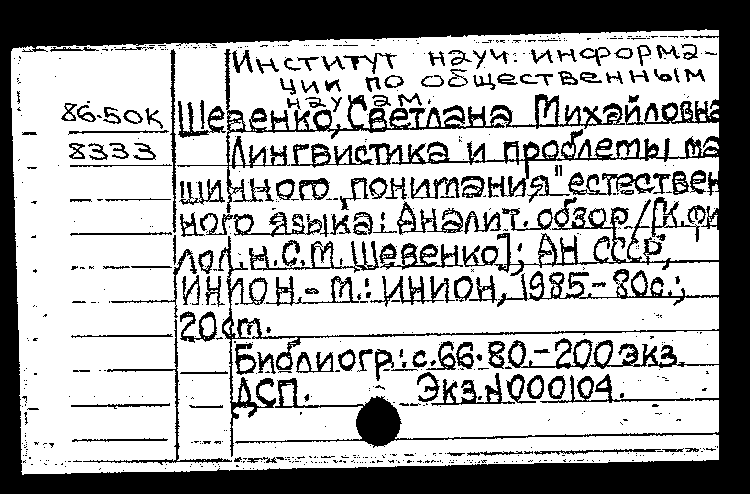 Институт науч. информа-
ции по общественным
наукам.
86.50к Шевенко, Светлана Михайловна
8333 Лингвистика и проблемы ма
шинного "понимания" естествен
ного языка: Аналит. обзор / [К. фи
лол. н. С.М. Шевенко]; АН СССР,
ИНИОН. - М.: ИНИОН, 1985. - 80с.;
20 cm.
Библиогр.: с. 66-80. - 200 экз.
ДСП. Экз. N000104.